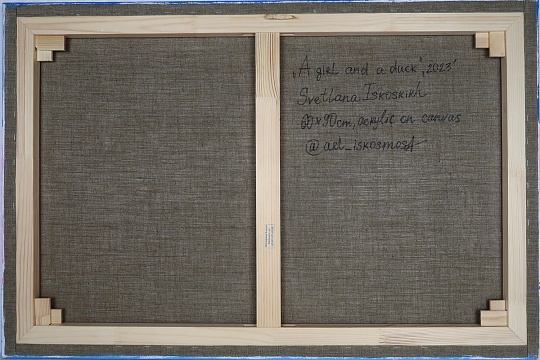 „A girl and a duck‘, 2023‘
Svetlana Iskoskikh
60x90cm, acrylic on canvas
@art_iskosmos